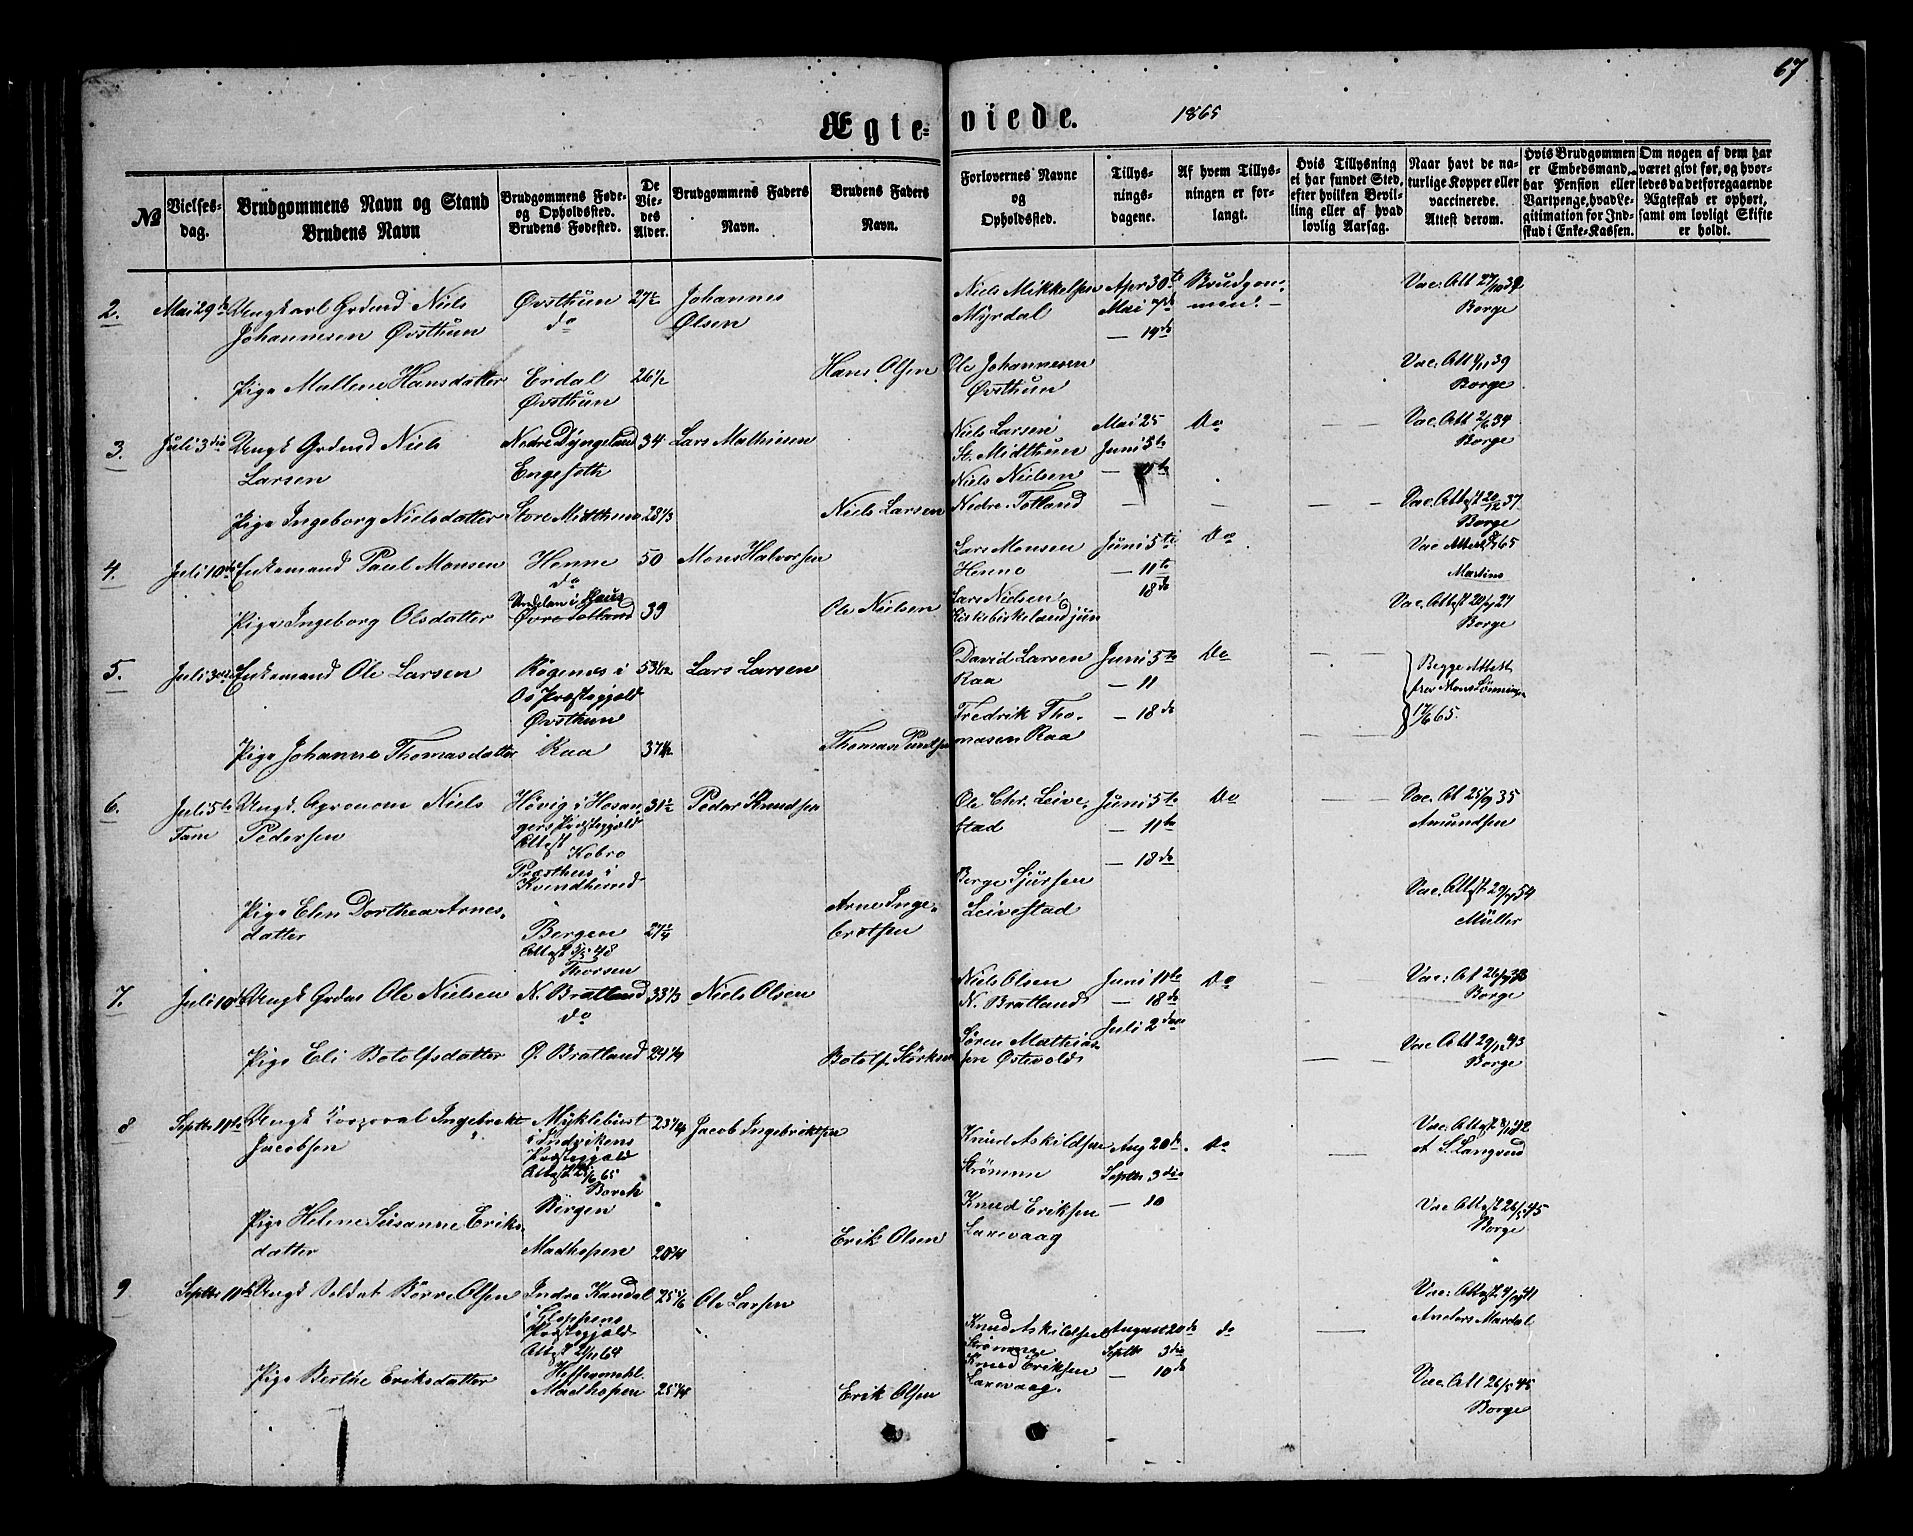 67
Ægteviede. 1865
No
Vielses-
dag.
Brudgommens Navn og Stand
Brudens Navn
Brudgommens Føde-
og Opholdssted.
Brudens Fødested.
De
Vie-
des
Alder.
Brudgommens Faders
Navn.
Brudens Faders
Navn.
Forlovernes Navne
og
Opholdssted.
Tillys-
nings-
dagene.
Af hvem Tillys-
ningen er for-
langt.
Hvis Tillysning
ei har fundet Sted,
efter hvilken Bevil-
ling eller af hvad
lovlig Aarsag.
Naar havt de na-
turlige Kopper eller
vaccinerede.
Attest derom.
Hvis Brudgommen
er Embedsmand,
har Pension eller
Vartpenge, hvad Le-
gitimation for Ind-
skud i Enke-Kassen.
Om nogen af dem har
været givt før, og hvor-
ledes da det foregaaende
Ægteskab er ophørt,
samt om lovligt Skifte
er holdt.
2. Mai 29de Ungkarl Grdmd Niels
Johannesen Øvsthun
Øvsthun
do
27½
Johannes
Olsen
Niels Mikkelsen
Myrdal
Apr 30te
Mai 7de
— 19de
Brudgom-
men.
Vac. Att 27/10 39
Borge
Pige Mallene Hansdatter
Erdal
Øvsthun
26½
Hans Olsen
Ole Johannesen
Øvsthun
Vac. Att 9/11 39
Borge
3. Juli 3die Ungk Grdmd Niels
Larsen
Nedre Dyngeland
Engeseth
34
Lars Mathiesen
Niels Larsen
St. Midthun
Niels Nielsen
Nedre Totland
Mai 25
Juni 5te
— 11te
Do
Vac. Att 2/6 34
Borge
Pige Ingeborg Nielsdatter
Store Midthun
28⅓
Niels Larsen
Vac. Attest 20/12 37
Borge
4. Juli 10de Enkemand Paul Monsen
Henne
do
50
Mons Halvorsen
Lars Monsen
Henne
Lars Nielsen
Kirkebirkeland jun
Juni 5te
— 11te
18de
Do
Martins
Pige Ingeborg Olsdatter
i Haus
Øvre Totland
39
Ole Nielsen
Vac. Attest 20/9 27
Borge
5. Juli 3die Enkemand Ole Larsen
Røgenes i
Os Præstegjæld
Øvsthun
Lars Larsen
David Larsen
Raa
Fredrik Tho-
masen Raa
Juni 5te
— 11
— 18de
Do
Begge Attest
fra Mons Lønningen
17/6 65.
Pige Johanne Thomasdatter
Raa
37½
Thomas
6. Juli 5te
Fane
Ungk. Agronom Niels
Pedersen
Høvig i Hosan-
gers Præstegjæld
Attest
Kobro
Præsthus i
Kvindherred
31½
Peder Knudsen
Ole Chr. Leive-
stad
Børge Sjursen
Leivestad
Juni 5te
— 11te
— 18de
Do
Vac. At 25/9 35
Amundsen
Pige Elen Dorthea Arnes-
datter
Bergen
Attest 3/5 48
Thorsen
Arne Inge-
brotsen
Vac. Attest 29/9 54
Müller
7. Juli 10de Ungk Grdm Ole Nielsen
N. Bratland
do
33⅓
Niels Olsen
Niels Olsen
N. Bratland
Søren Mathia-
sen Østevold
Juni 11te
— 18de
Juli 2den
Do
Vac. At 26/9 38
Borge
Pige Eli Botolfsdatter
Ø. Bratland
24¼
Botolf Størksen
Vac Att 29/12 43
Borge
8 Septbr 11te Ungk Korporal Ingebrekt
Jacobsen
Myklebust
i Indvikens
Præstegjæld
Attest 65
Borch
Bergen
23¼
Jacob Ingebriktsen
Knud Askildsen
Strømme
Knud Eriksen
Larevaag
Aug 20de
Septbr 3die
— 10
Do
Pige Helene Susanne Eriks-
datter
Madhopen
20¼
Erik Olsen
Vac Attest 26/5 45
Borge
9 Septbr 11te Ungk Soldat Børre Olsen
Indre Kandal
i Gloppens
Præstegjæld
Attest 2/11 64
Ole Larsen
Knud Askildsen
Strømme
Knud Eriksen
Larevaag.
August 20de
Septbr 3die
— 10de
do
Anders Mardal
Pige Berthe Eriksdatter
Madhopen
25¼
Erik Olsen
Vac. Att 26/5 45
Borge